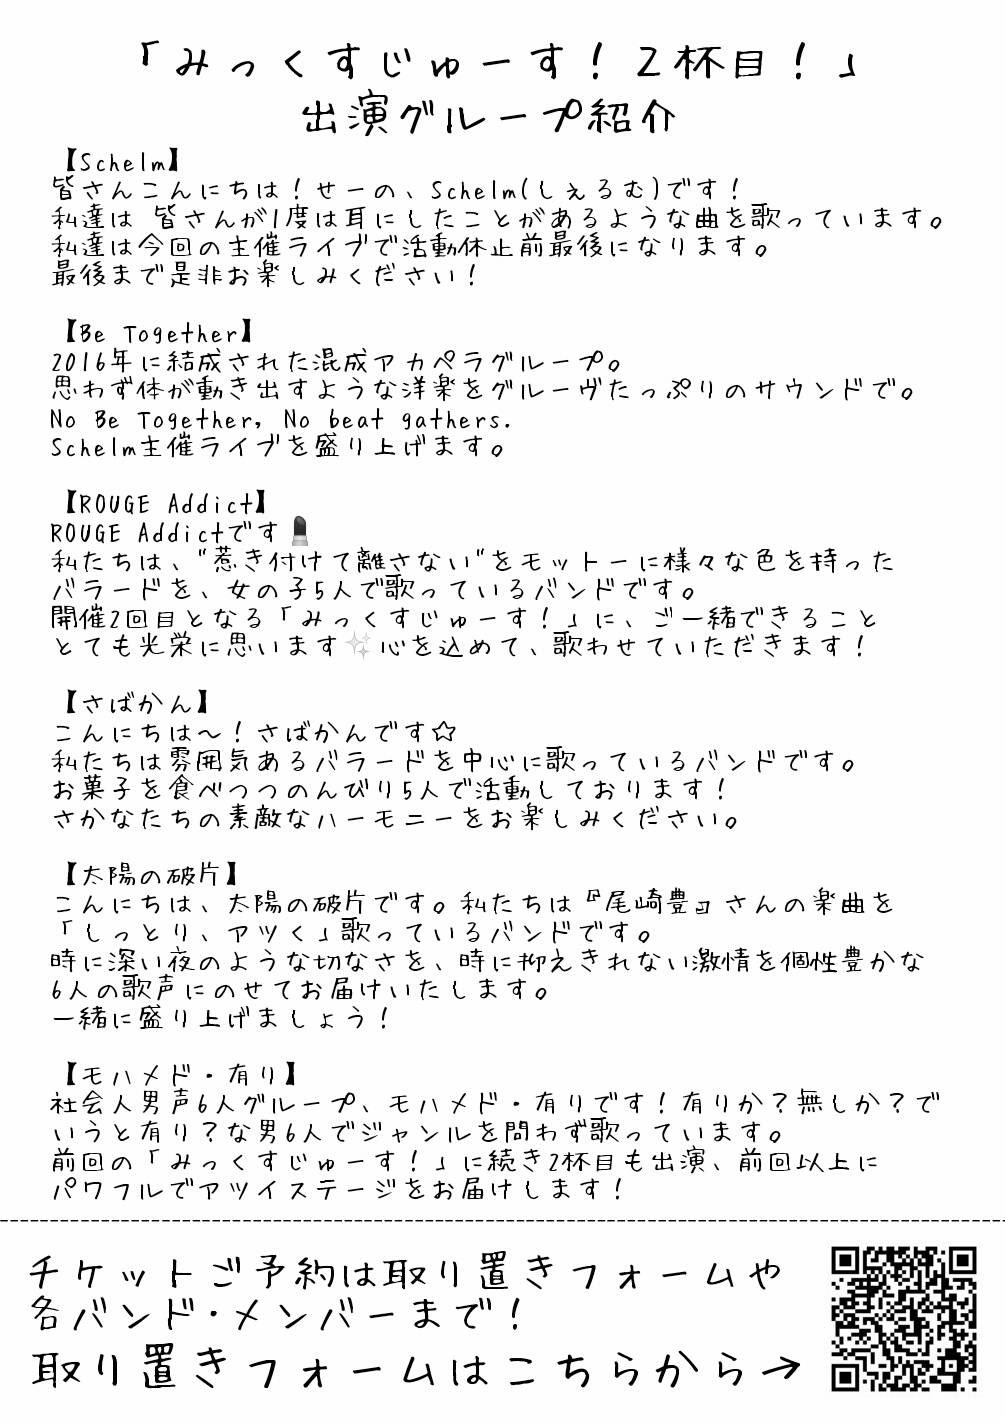 「みっくすじゅーす！2杯目！」
出演グループ紹介
【Schelm】
皆さんこんにちは！せーの、Schelm(しぇるむ)です！
私達は 皆さんが1度は耳にしたことがあるような曲を歌っています。
私達は今回の主催ライブで活動休止前最後になります。
最後まで是非お楽しみください！
【Be Together】
2016年に結成された混成アカペラグループ。
思わず体が動き出すような洋楽をグルーヴたっぷりのサウンドで。
No Be Together, No beat gathers.
Schelm主催ライブを盛り上げます。
【ROUGE Addict】
ROUGE Addictです💄
私たちは、"惹き付けて離さない"をモットーに様々な色を持った
バラードを、女の子5人で歌っているバンドです。
開催2回目となる「みっくすじゅーす！」に、ご一緒できること
とても光栄に思います✨心を込めて、歌わせていただきます！
【さばかん】
こんにちは〜！さばかんです☆
私たちは雰囲気あるバラードを中心に歌っているバンドです。
お菓子を食べつつのんびり5人で活動しております！
さかなたちの素敵なハーモニーをお楽しみください。
【太陽の破片】
こんにちは、太陽の破片です。私たちは『尾崎豊』さんの楽曲を
「しっとり、アツく」歌っているバンドです。
時に深い夜のような切なさを、時に抑えきれない激情を個性豊かな
6人の歌声にのせてお届けいたします。
一緒に盛り上げましょう！
【モハメド・有り】
社会人男声6人グループ、モハメド・有りです！有りか？無しか？で
いうと有り？な男6人でジャンルを問わず歌っています。
前回の「みっくすじゅーす！」に続き2杯目も出演、前回以上に
パワフルでアツイステージをお届けします！
チケットご予約は取り置きフォームや
各バンド・メンバーまで！
取り置きフォームはこちらから→